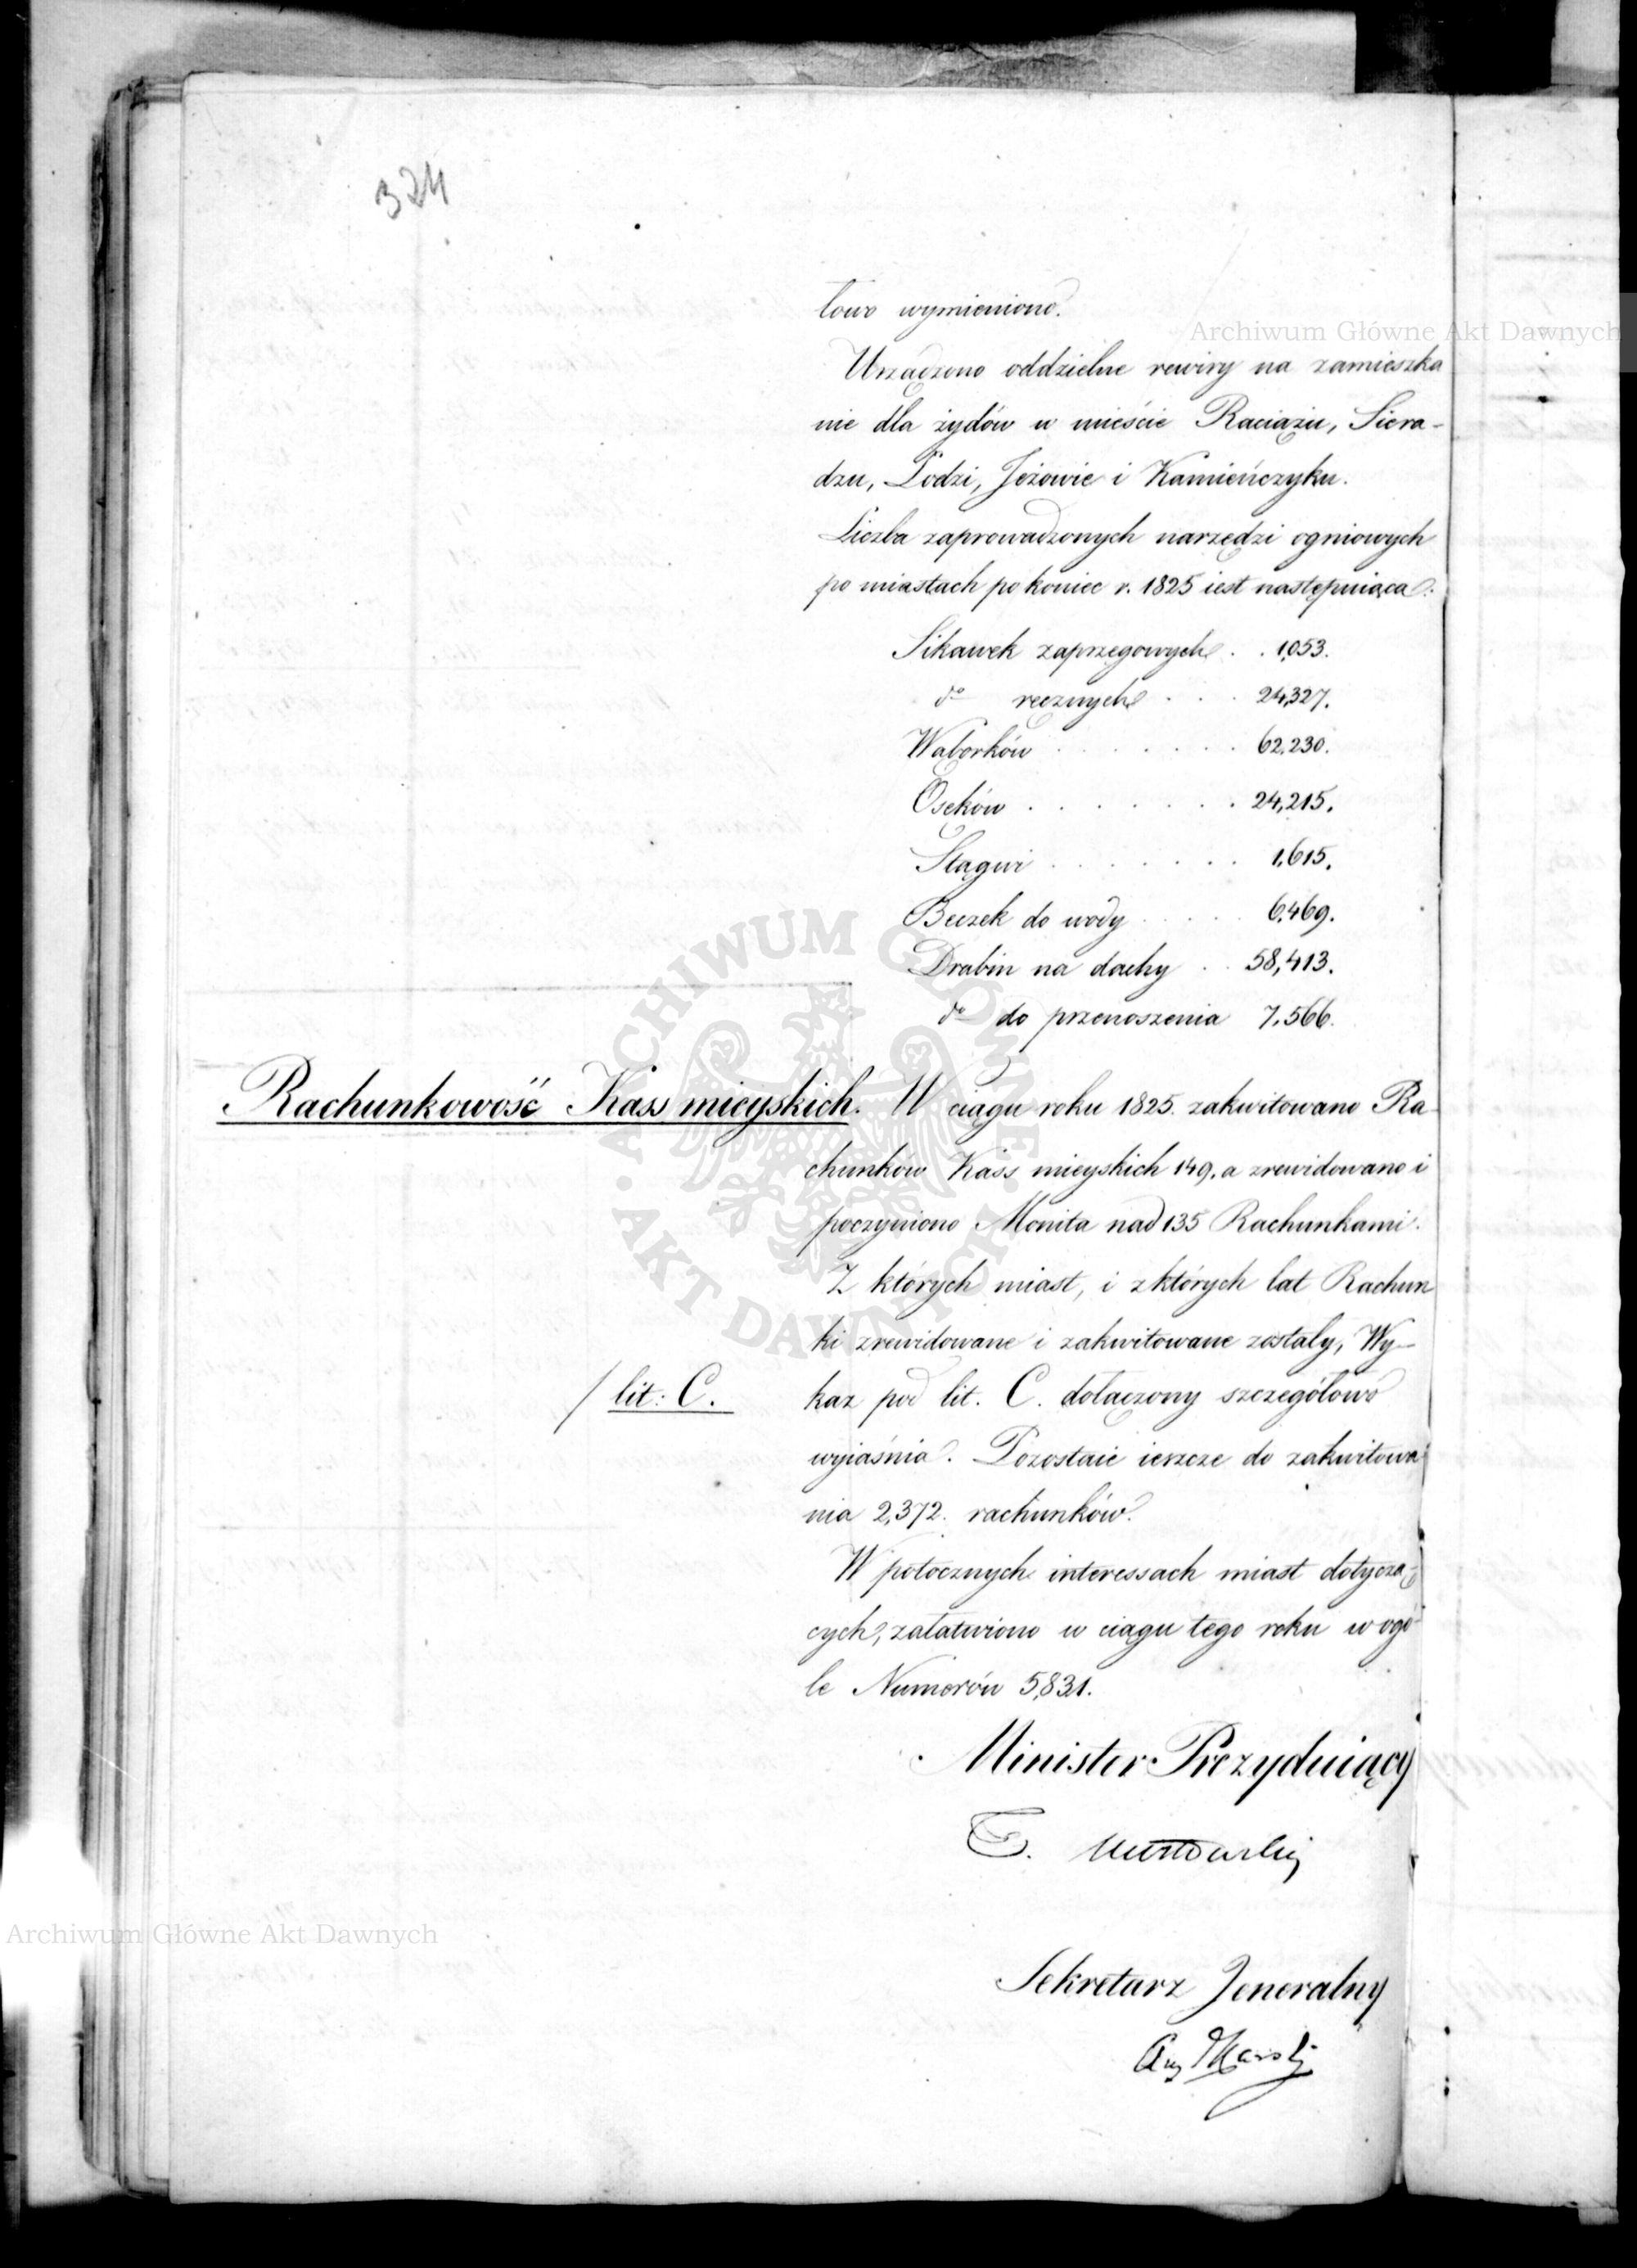 324
łowo wymieniono.
Urządzono oddzielne rewiry na zamieszka
nie dla żydów w mieście Raciążu, Siera-
dzu, Łodzi, Jeżowie i Kamieńczyku.
Liczba zaprowadzonych narzędzi ogniowych
po miastach po koniec r. 1825 iest następuiąca:
Sikawek zaprzęgowych . . 1,053.
do ręcznych . . . 24,327.
Wąborków . . . . . . . 62,230.
Osęków . . . . . . . 24,215.
Stągwi . . . . . . . 1,615.
Beczek do wody . . . . . 6,469.
Drabin na dachy . . 58,413.
do do przenoszenia 7,566.
Rachunkowość Kass mieyskich. W ciągu roku 1825. zakwitowano Ra
chunków Kass mieyskich 149. a zrewidowano i
poczyniono Monita nad 135 Rachunkami.
Z których miast, i z których lat Rachun
ki zrewidowane i zakwitowane zostały, Wy-
/ lit: C. kaz pod lit. C. dołączony szczegółowo
wyiaśnia. Pozostaie ieszcze do zakwitowa
nia 2,372. rachunków.
W potocznych interessach miast dotyczą-
cych, załatwiono w ciągu tego roku w ogó
le Numerów 5,831.
Minister Prezyduiący
T. Mostowski
Sekretarz Jeneralny
Aug Karski
Archiwum Główne Akt Dawnych
Archiwum Główne Akt Dawnych
ARCHIWUM GŁÓWNE AKT DAWNYCH